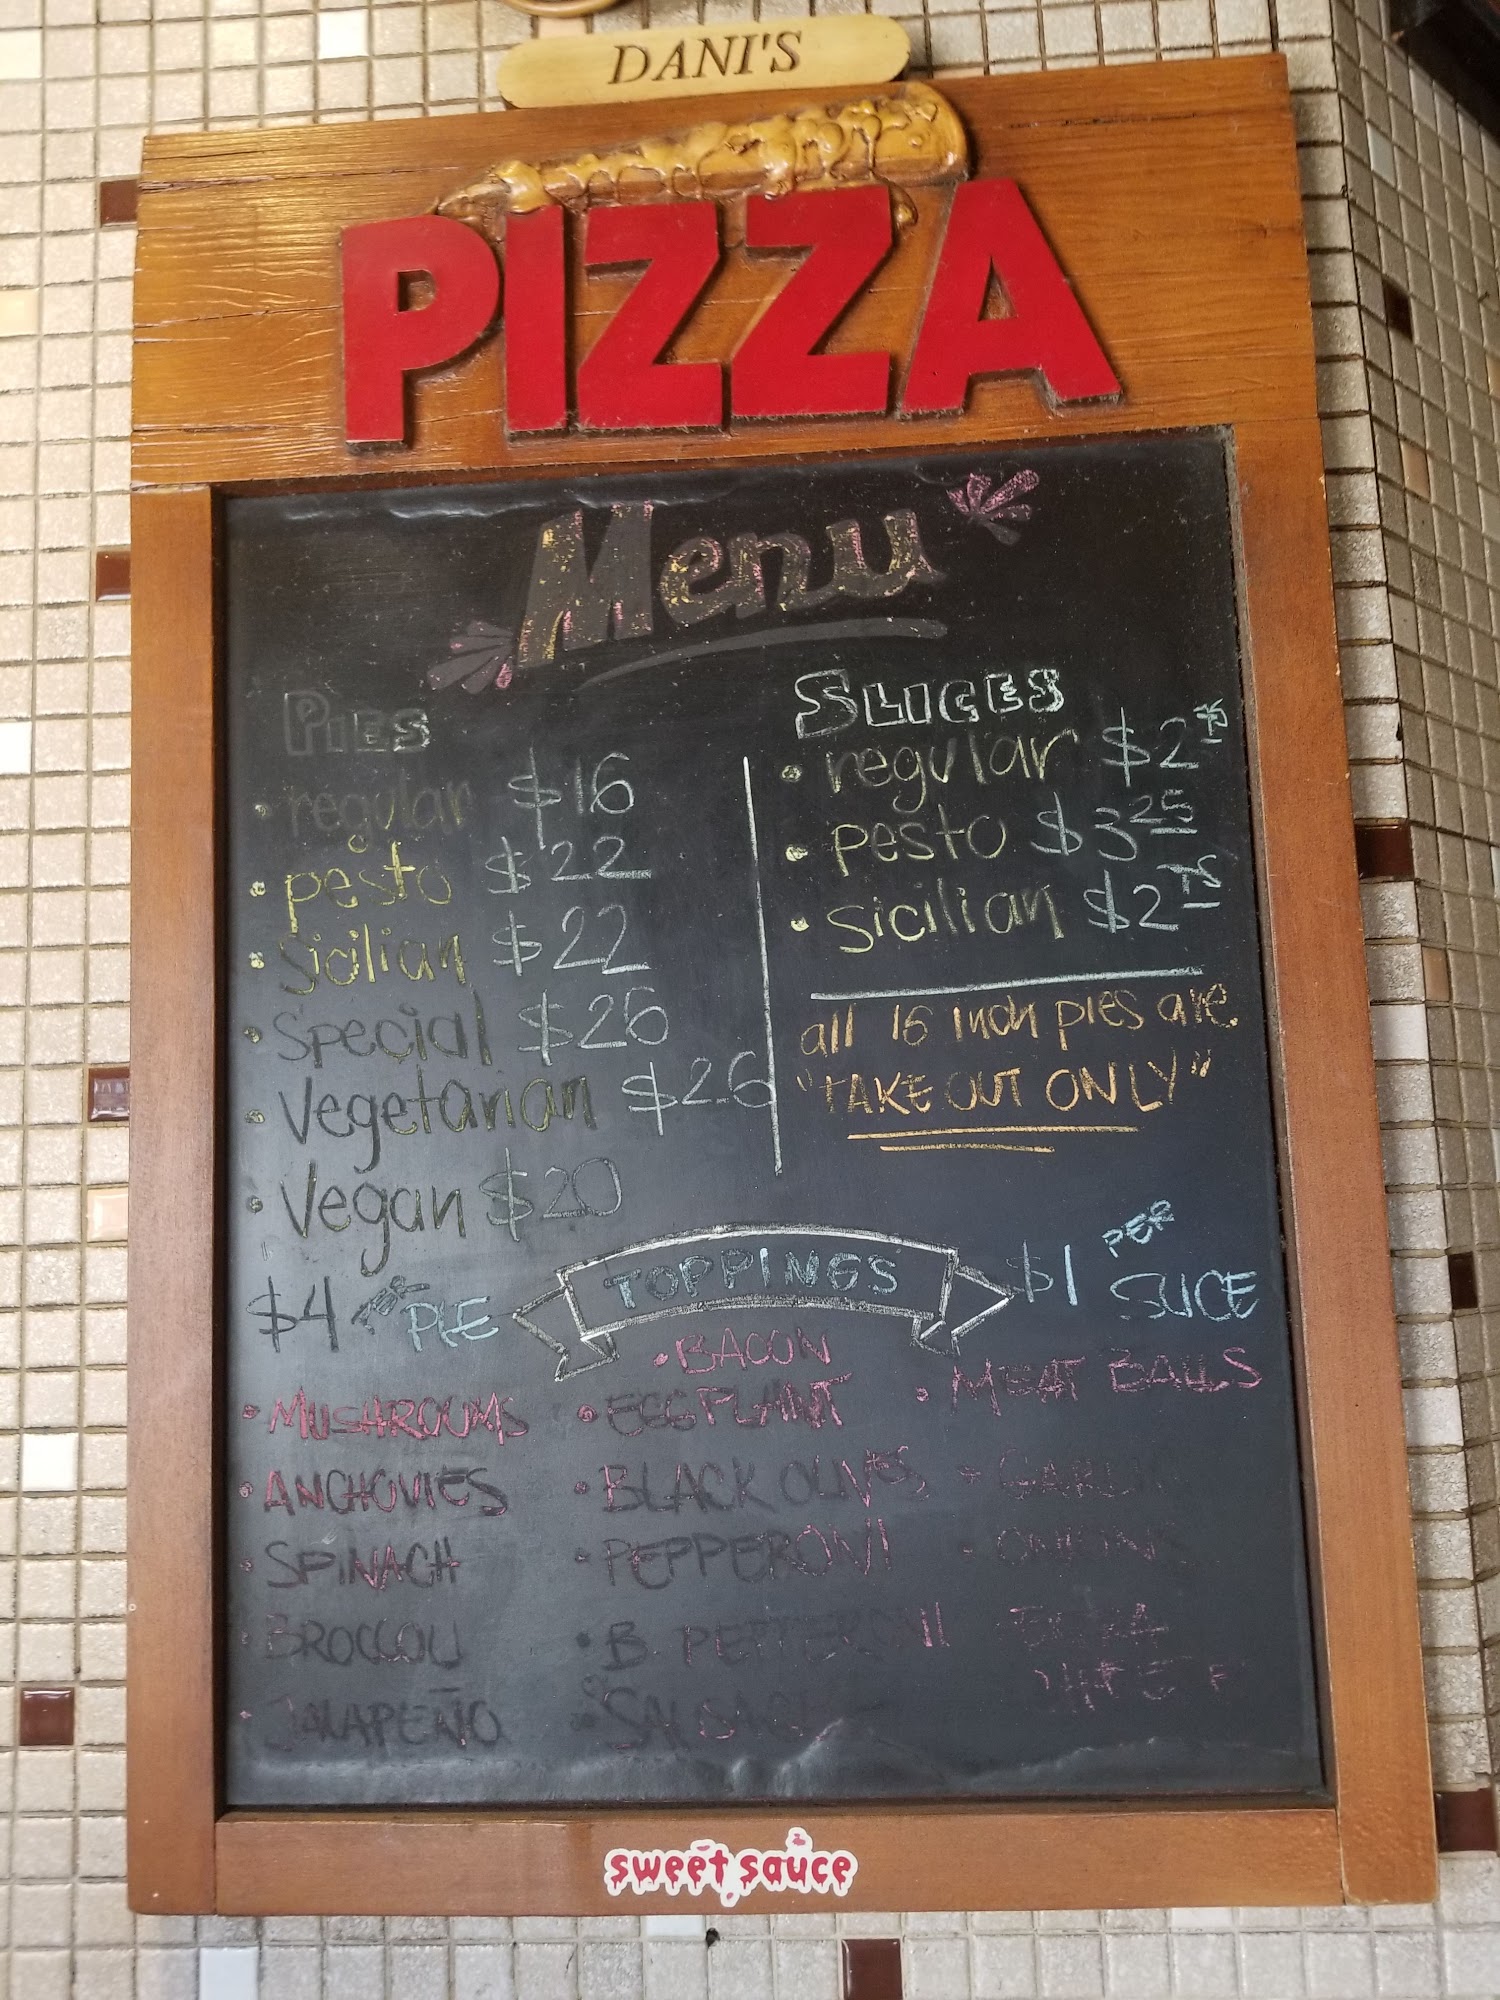 DANI'S
PIZZA
Menu
PIES
• regular $16
• pesto $22
• Sicilian $22
• Special $26
• Vegetarian $26
• Vegan $20
SLICES
• regular $2
• pesto $3 25
• Sicilian $2 75
all 16 inch pies are
"TAKE OUT ONLY"
$4 PER PIE
TOPPINGS
$1 PER SLICE
• MUSHROOMS
• ANCHOVIES
• SPINACH
• BROCCOLI
• JALAPEÑO
• BACON
• EGGPLANT
• BLACK OLIVES
• PEPPERONI
• B. PEPPERONI
• MEAT BALLS
• GARLIC
• ONIONS
EXTRA
sweet sauce